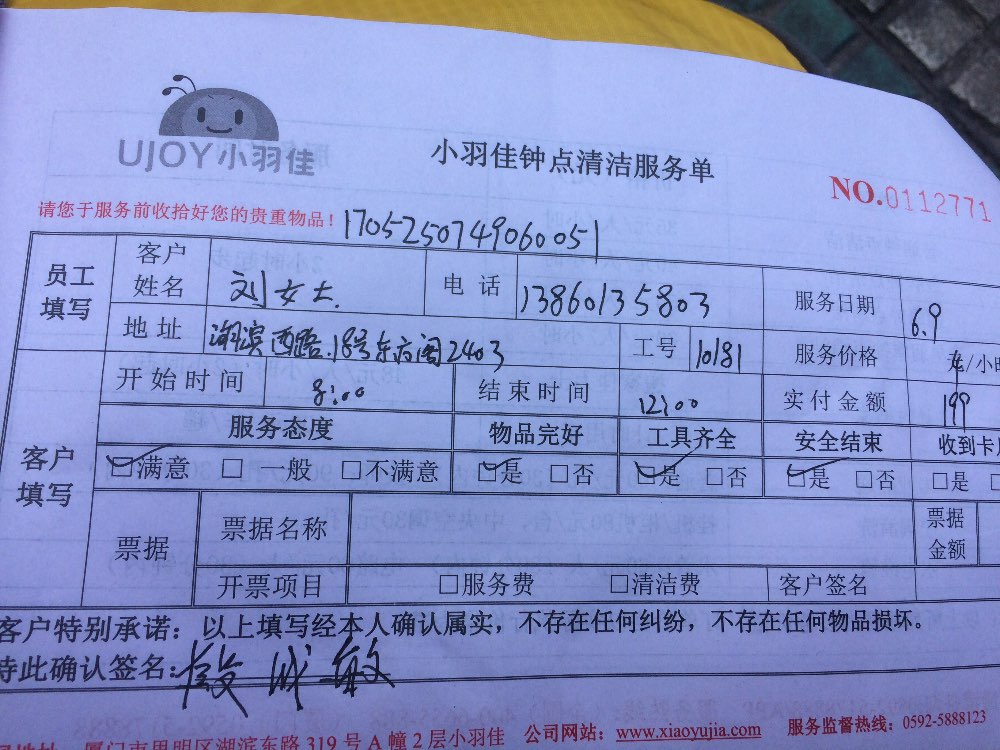 UJOY小羽佳
小羽佳钟点清洁服务单
NO.0112771
请您于服务前收拾好您的贵重物品！1705250749060051
员工填写 客户姓名 刘女士 电话 13860135803 服务日期 6.9
地址 湖滨西路.18号东方阁2403 工号 10181 服务价格 元/小时
开始时间 8:00 结束时间 12:00 实付金额 199
客户填写 服务态度 物品完好 工具齐全 安全结束 收到卡
☑满意 □一般 □不满意 ☑是 □否 ☑是 □否 ☑是 □否 □是 □
票据 票据名称 票据金额
开票项目 □服务费 □清洁费 客户签名
客户特别承诺：以上填写经本人确认属实，不存在任何纠纷，不存在任何物品损坏。
特此确认签名：
厦门市思明区湖滨东路319号A幢2层小羽佳 公司网站：www.xiaoyujia.com 服务监督热线：0592-5888123